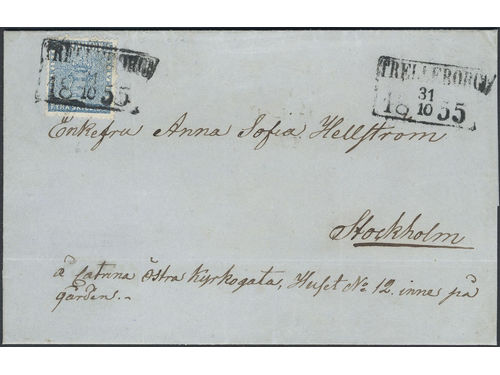 TRELLEBORG
31
10
1855
TRELLEBORG
31
10
1855
FYRA SKILL
Enkefru Anna Sofia Hellstrom
Stockholm
å Catrina östra Kyrkogata, Huset No 12. inne på
gården.-